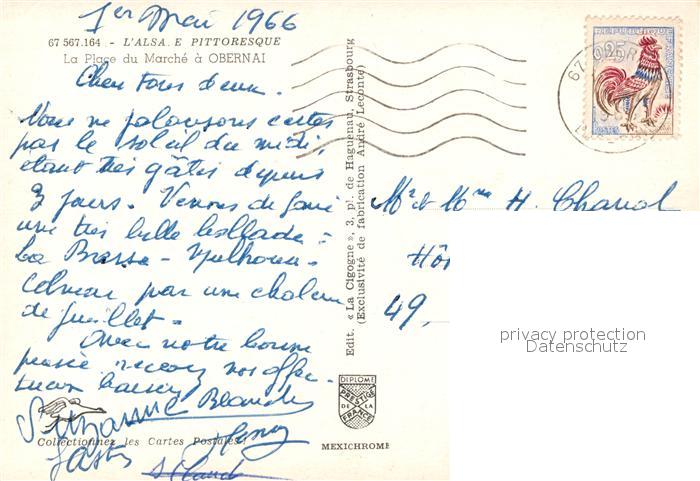 1er Mai 1966
67 567.164 - L'ALSA E PITTORESQUE
La Place du Marché à OBERNAI
Chers tous deux.
Nous ne jalousons certes
pas le soleil du midi,
étant très gâtés depuis
3 jours. Venons de faire
une très belle ballade :
La Bresse - Mulhouse -
Colmar par une chaleur
de juillet.
Avec notre bonne
pensée recevez nos affec-
tueux baisers
Suzanne Blanche
Collectionnez les Cartes Postales !
Edit. « La Cigogne », 3, pl. de Haguenau, Strasbourg
(Exclusivité de fabrication André Leconte)
DIPLOME
PRESTIGE
DE LA
FRANCE
MEXICHROME
0,25
67
Mr et Mme H. Chanol
Hô
49,
privacy protection
Datenschutz